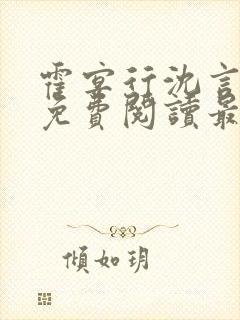 霍宴行沈言
免費閱讀最
傾如玥